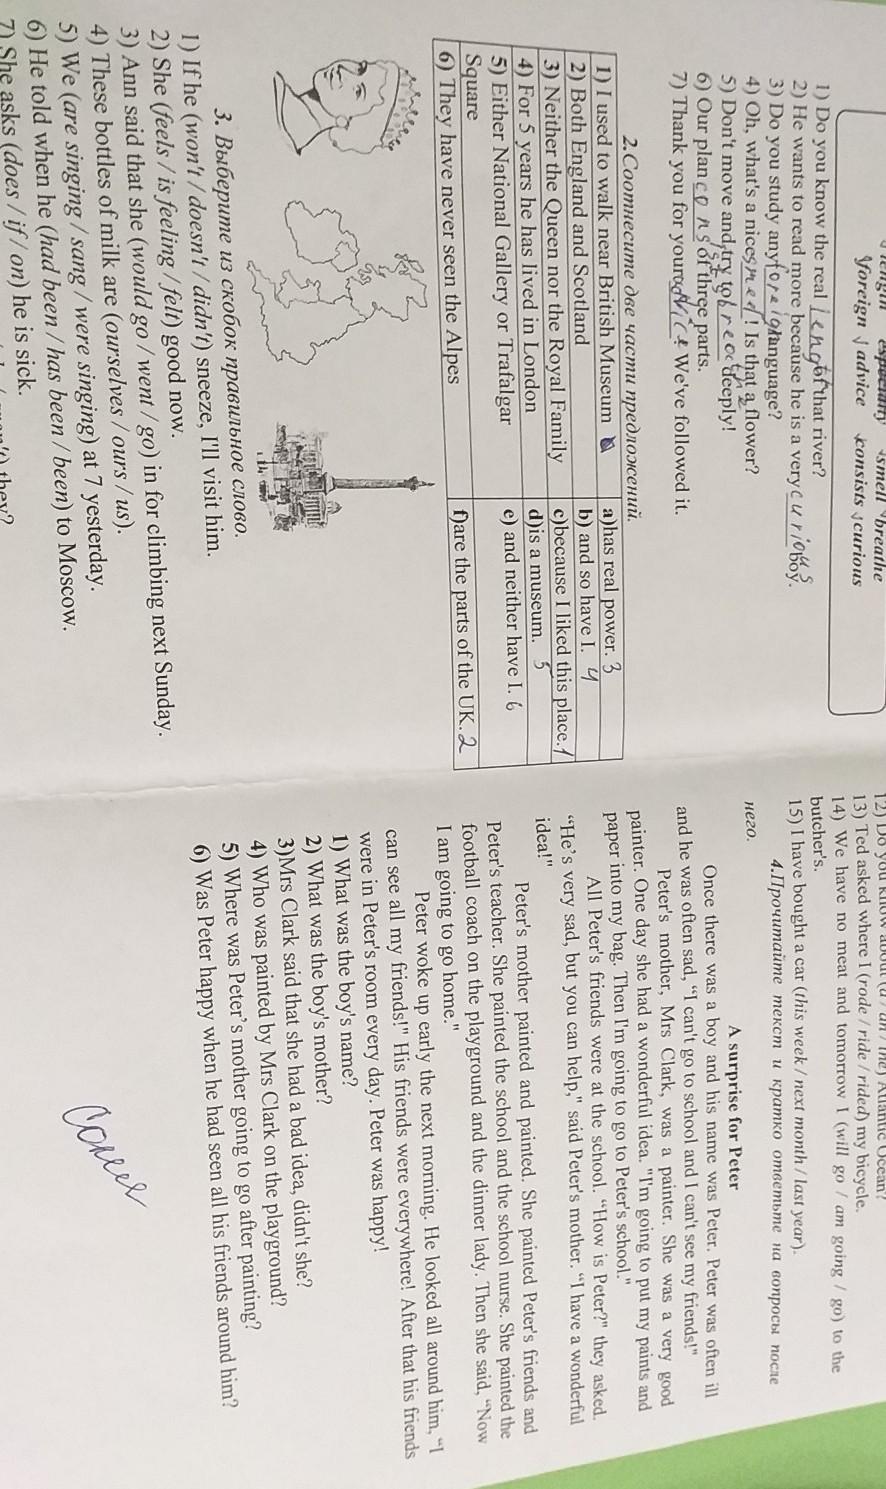 length especially smell breathe
foreign advice consists curious
1) Do you know the real length of that river?
2) He wants to read more because he is a very curious boy.
3) Do you study any foreign language?
4) Oh, what's a nice smell! Is that a flower?
5) Don't move and try to breathe deeply!
6) Our plan consists of three parts.
7) Thank you for your advice. We've followed it.
2.Соотнесите две части предложений.
1) I used to walk near British Museum
a)has real power. 3
2) Both England and Scotland
b) and so have I. 4
3) Neither the Queen nor the Royal Family
c)because I liked this place. 1
4) For 5 years he has lived in London
d)is a museum. 5
5) Either National Gallery or Trafalgar
Square
e) and neither have I. 6
6) They have never seen the Alpes
f)are the parts of the UK. 2
3. Выберите из скобок правильное слово.
1) If he (won't / doesn't / didn't) sneeze, I'll visit him.
2) She (feels / is feeling / felt) good now.
3) Ann said that she (would go / went / go) in for climbing next Sunday.
4) These bottles of milk are (ourselves / ours / us).
5) We (are singing / sang / were singing) at 7 yesterday.
6) He told when he (had been / has been / been) to Moscow.
7) She asks (does / if / on) he is sick.
they?
12) Do you know about (a / an / the) Atlantic Ocean?
13) Ted asked where I (rode / ride / rided) my bicycle.
14) We have no meat and tomorrow I (will go / am going / go) to the
butcher's.
15) I have bought a car (this week / next month / last year).
4.Прочитайте текст и кратко ответьте на вопросы после
него.
A surprise for Peter
Once there was a boy and his name was Peter. Peter was often ill
and he was often sad, "I can't go to school and I can't see my friends!"
Peter's mother, Mrs Clark, was a painter. She was a very good
painter. One day she had a wonderful idea. "I'm going to put my paints and
paper into my bag. Then I'm going to go to Peter's school."
All Peter's friends were at the school. "How is Peter?" they asked.
"He's very sad, but you can help," said Peter's mother. "I have a wonderful
idea!"
Peter's mother painted and painted. She painted Peter's friends and
Peter's teacher. She painted the school and the school nurse. She painted the
football coach on the playground and the dinner lady. Then she said, "Now
I am going to go home."
Peter woke up early the next morning. He looked all around him, "I
can see all my friends!" His friends were everywhere! After that his friends
were in Peter's room every day. Peter was happy!
1) What was the boy's name?
2) What was the boy's mother?
3)Mrs Clark said that she had a bad idea, didn't she?
4) Who was painted by Mrs Clark on the playground?
5) Where was Peter's mother going to go after painting?
6) Was Peter happy when he had seen all his friends around him?